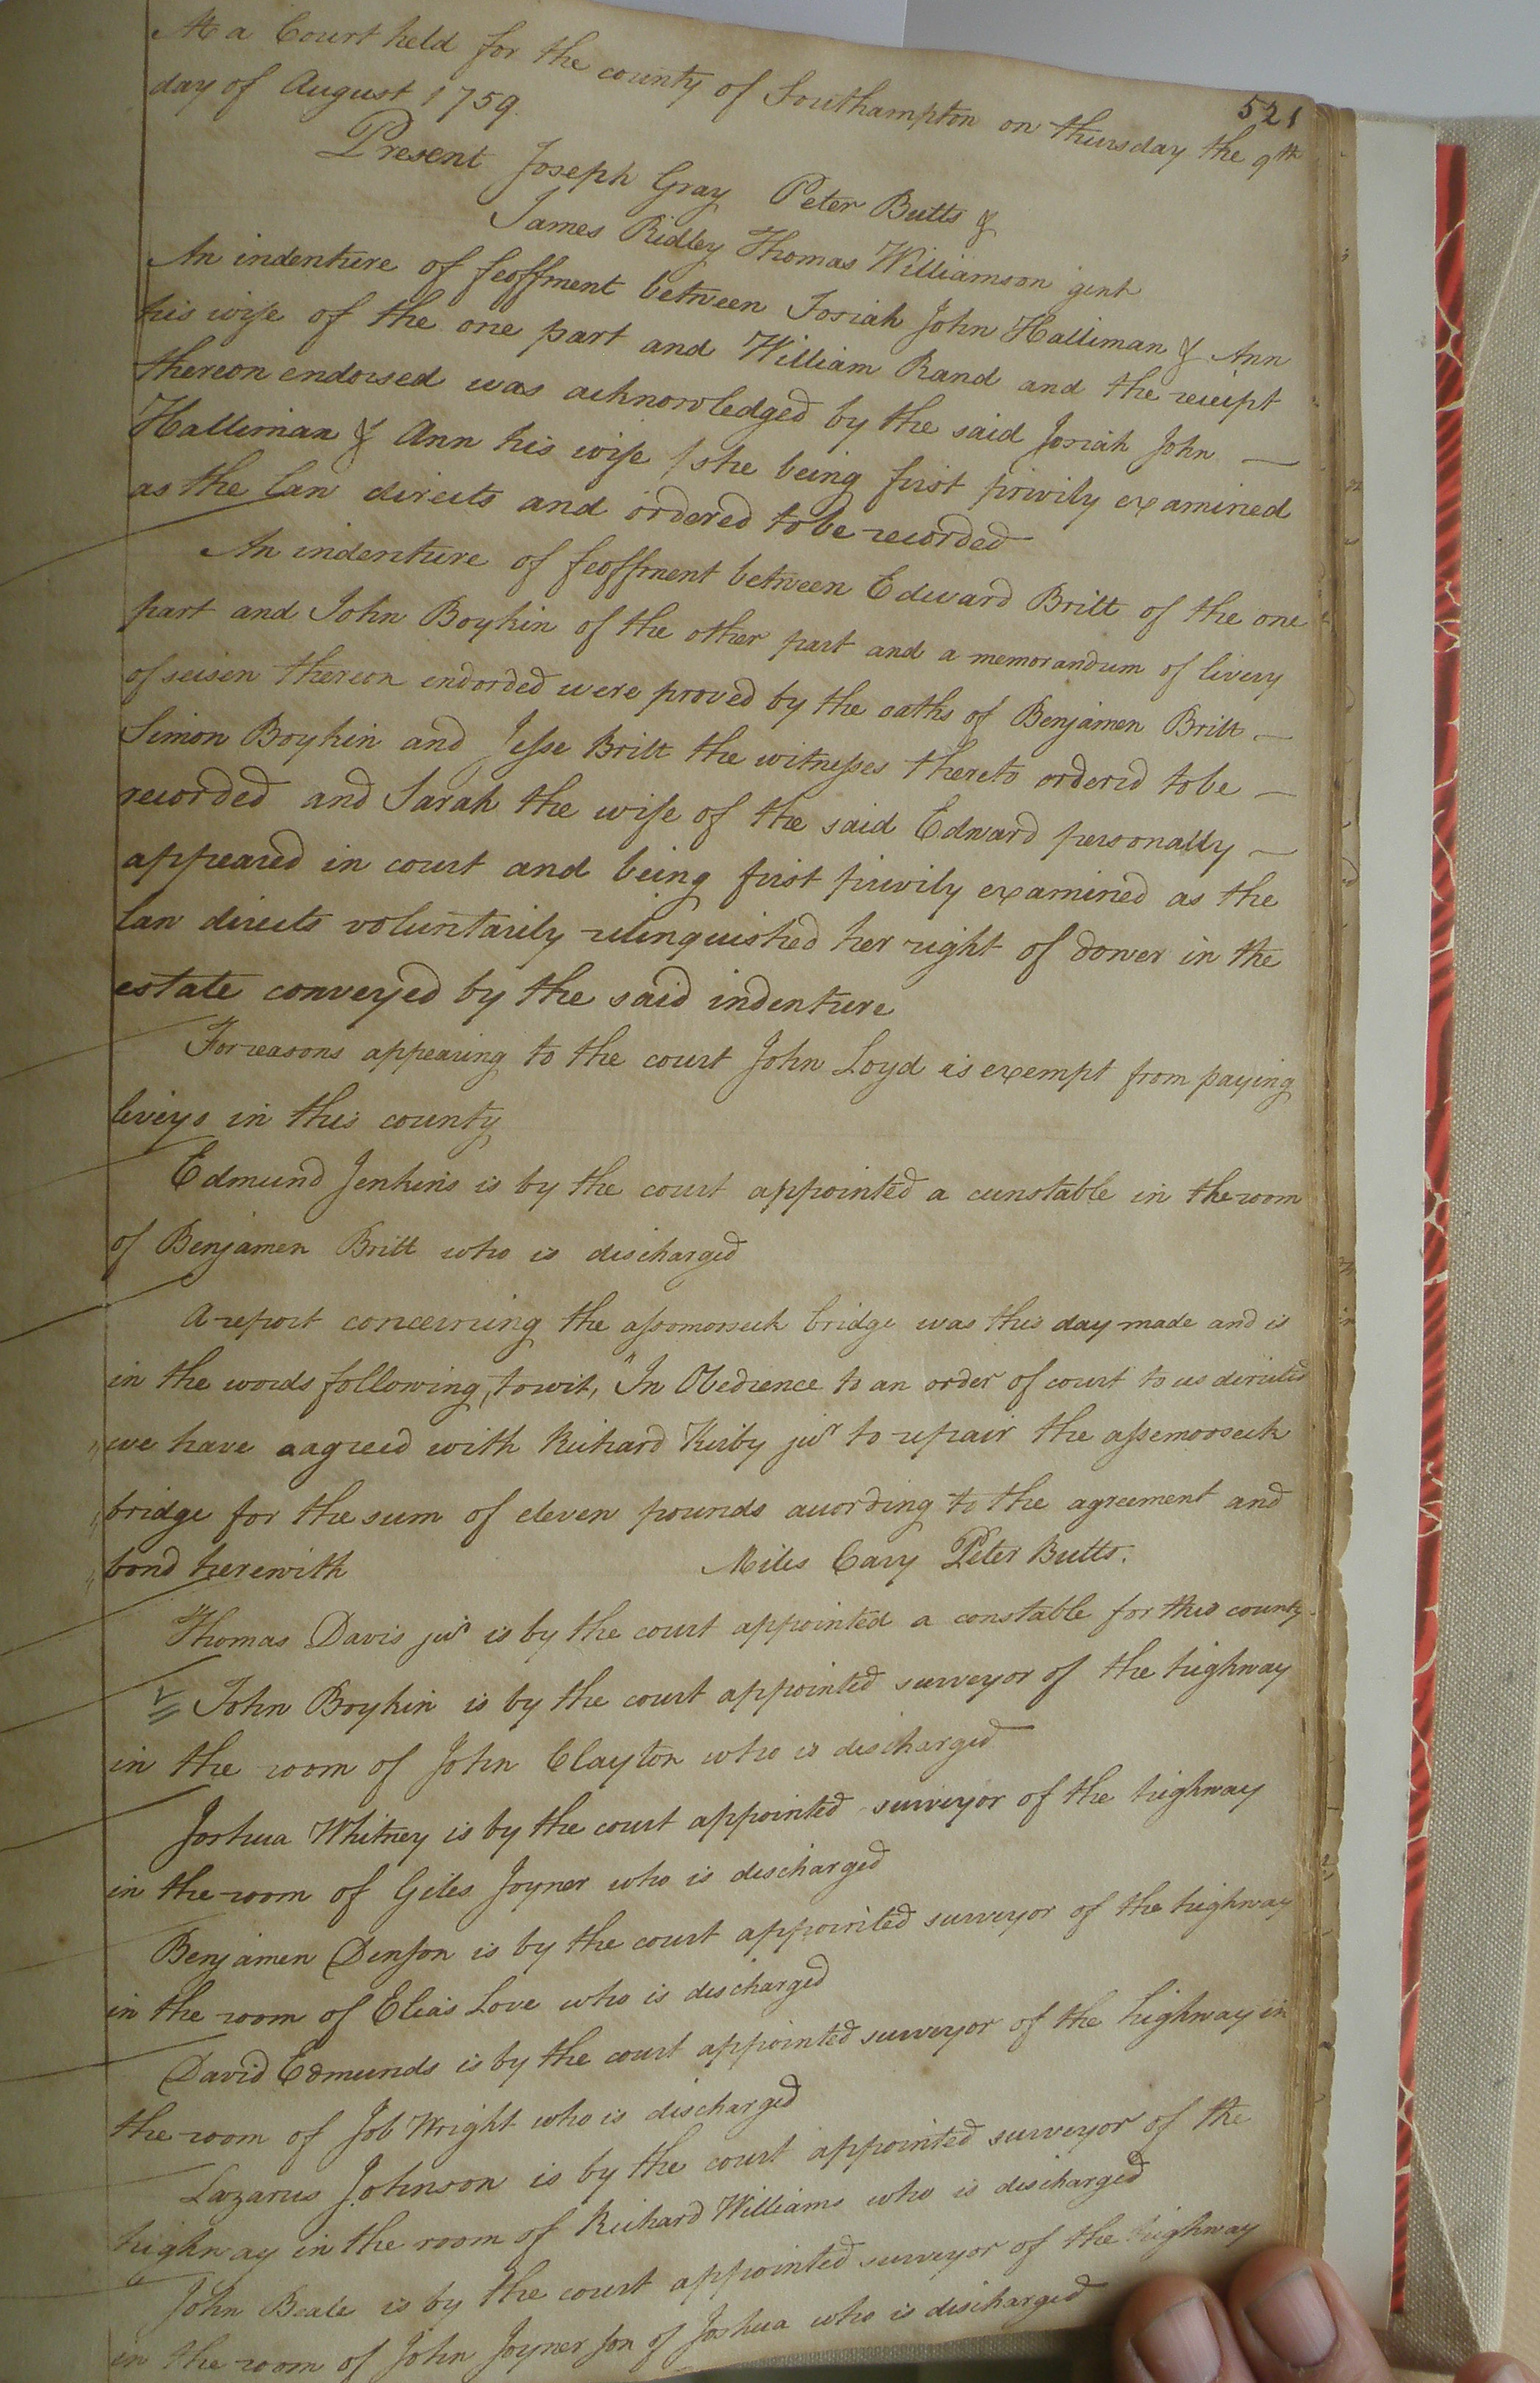 521
At a Court held for the county of Southampton on thursday the 9th
day of August 1759.
Present Joseph Gray Peter Butts &
James Ridley Thomas Williamson gent
An indenture of feoffment between Josiah John Halliman & Ann
his wife of the one part and William Rand and the receipt
thereon endorsed was acknowledged by the said Josiah John —
Halliman & Ann his wife /she being first privily examined
as the law directs and ordered to be recorded
An indenture of feoffment between Edward Britt of the one
part and John Boykin of the other part and a memorandum of livery
of seisen thereon endorded were proved by the oaths of Benjamen Britt —
Simon Boykin and Jesse Britt the witnesses thereto ordered to be —
recorded and Sarah the wife of the said Edward personally —
appeared in court and being first privily examined as the
law directs voluntarily relinquished her right of dower in the
estate conveyed by the said indenture
For reasons appearing to the court John Loyd is exempt from paying
leviys in this county
Edmund Jenkins is by the court appointed a cunstable in the room
of Benjamen Britt who is discharged
A report concerning the assomorseck bridge was this day made and is
in the words following, towit, "In Obedience to an order of court to us directed
" we have aagreed with Richard Kirby junr to repair the assemorseek
" bridge for the sum of eleven pounds according to the agreement and
" bond herewith Miles Cary Peter Butts.
Thomas Davis junr is by the court appointed a constable for this county
John Boykin is by the court appointed surveyor of the highway
in the room of John Clayton who is discharged
Joshua Whitney is by the court appointed surveyor of the highway
in the room of Giles Joyner who is discharged
Benjamen Denson is by the court appointed surveyor of the highway
in the room of Elias Love who is discharged
David Edmunds is by the court appointed surveyor of the highway in
the room of Job Wright who is discharged
Lazarus Johnson is by the court appointed surveyor of the
highway in the room of Richard Williams who is discharged
John Beale is by the court appointed surveyor of the highway
in the room of John Joyner son of Joshua who is discharged